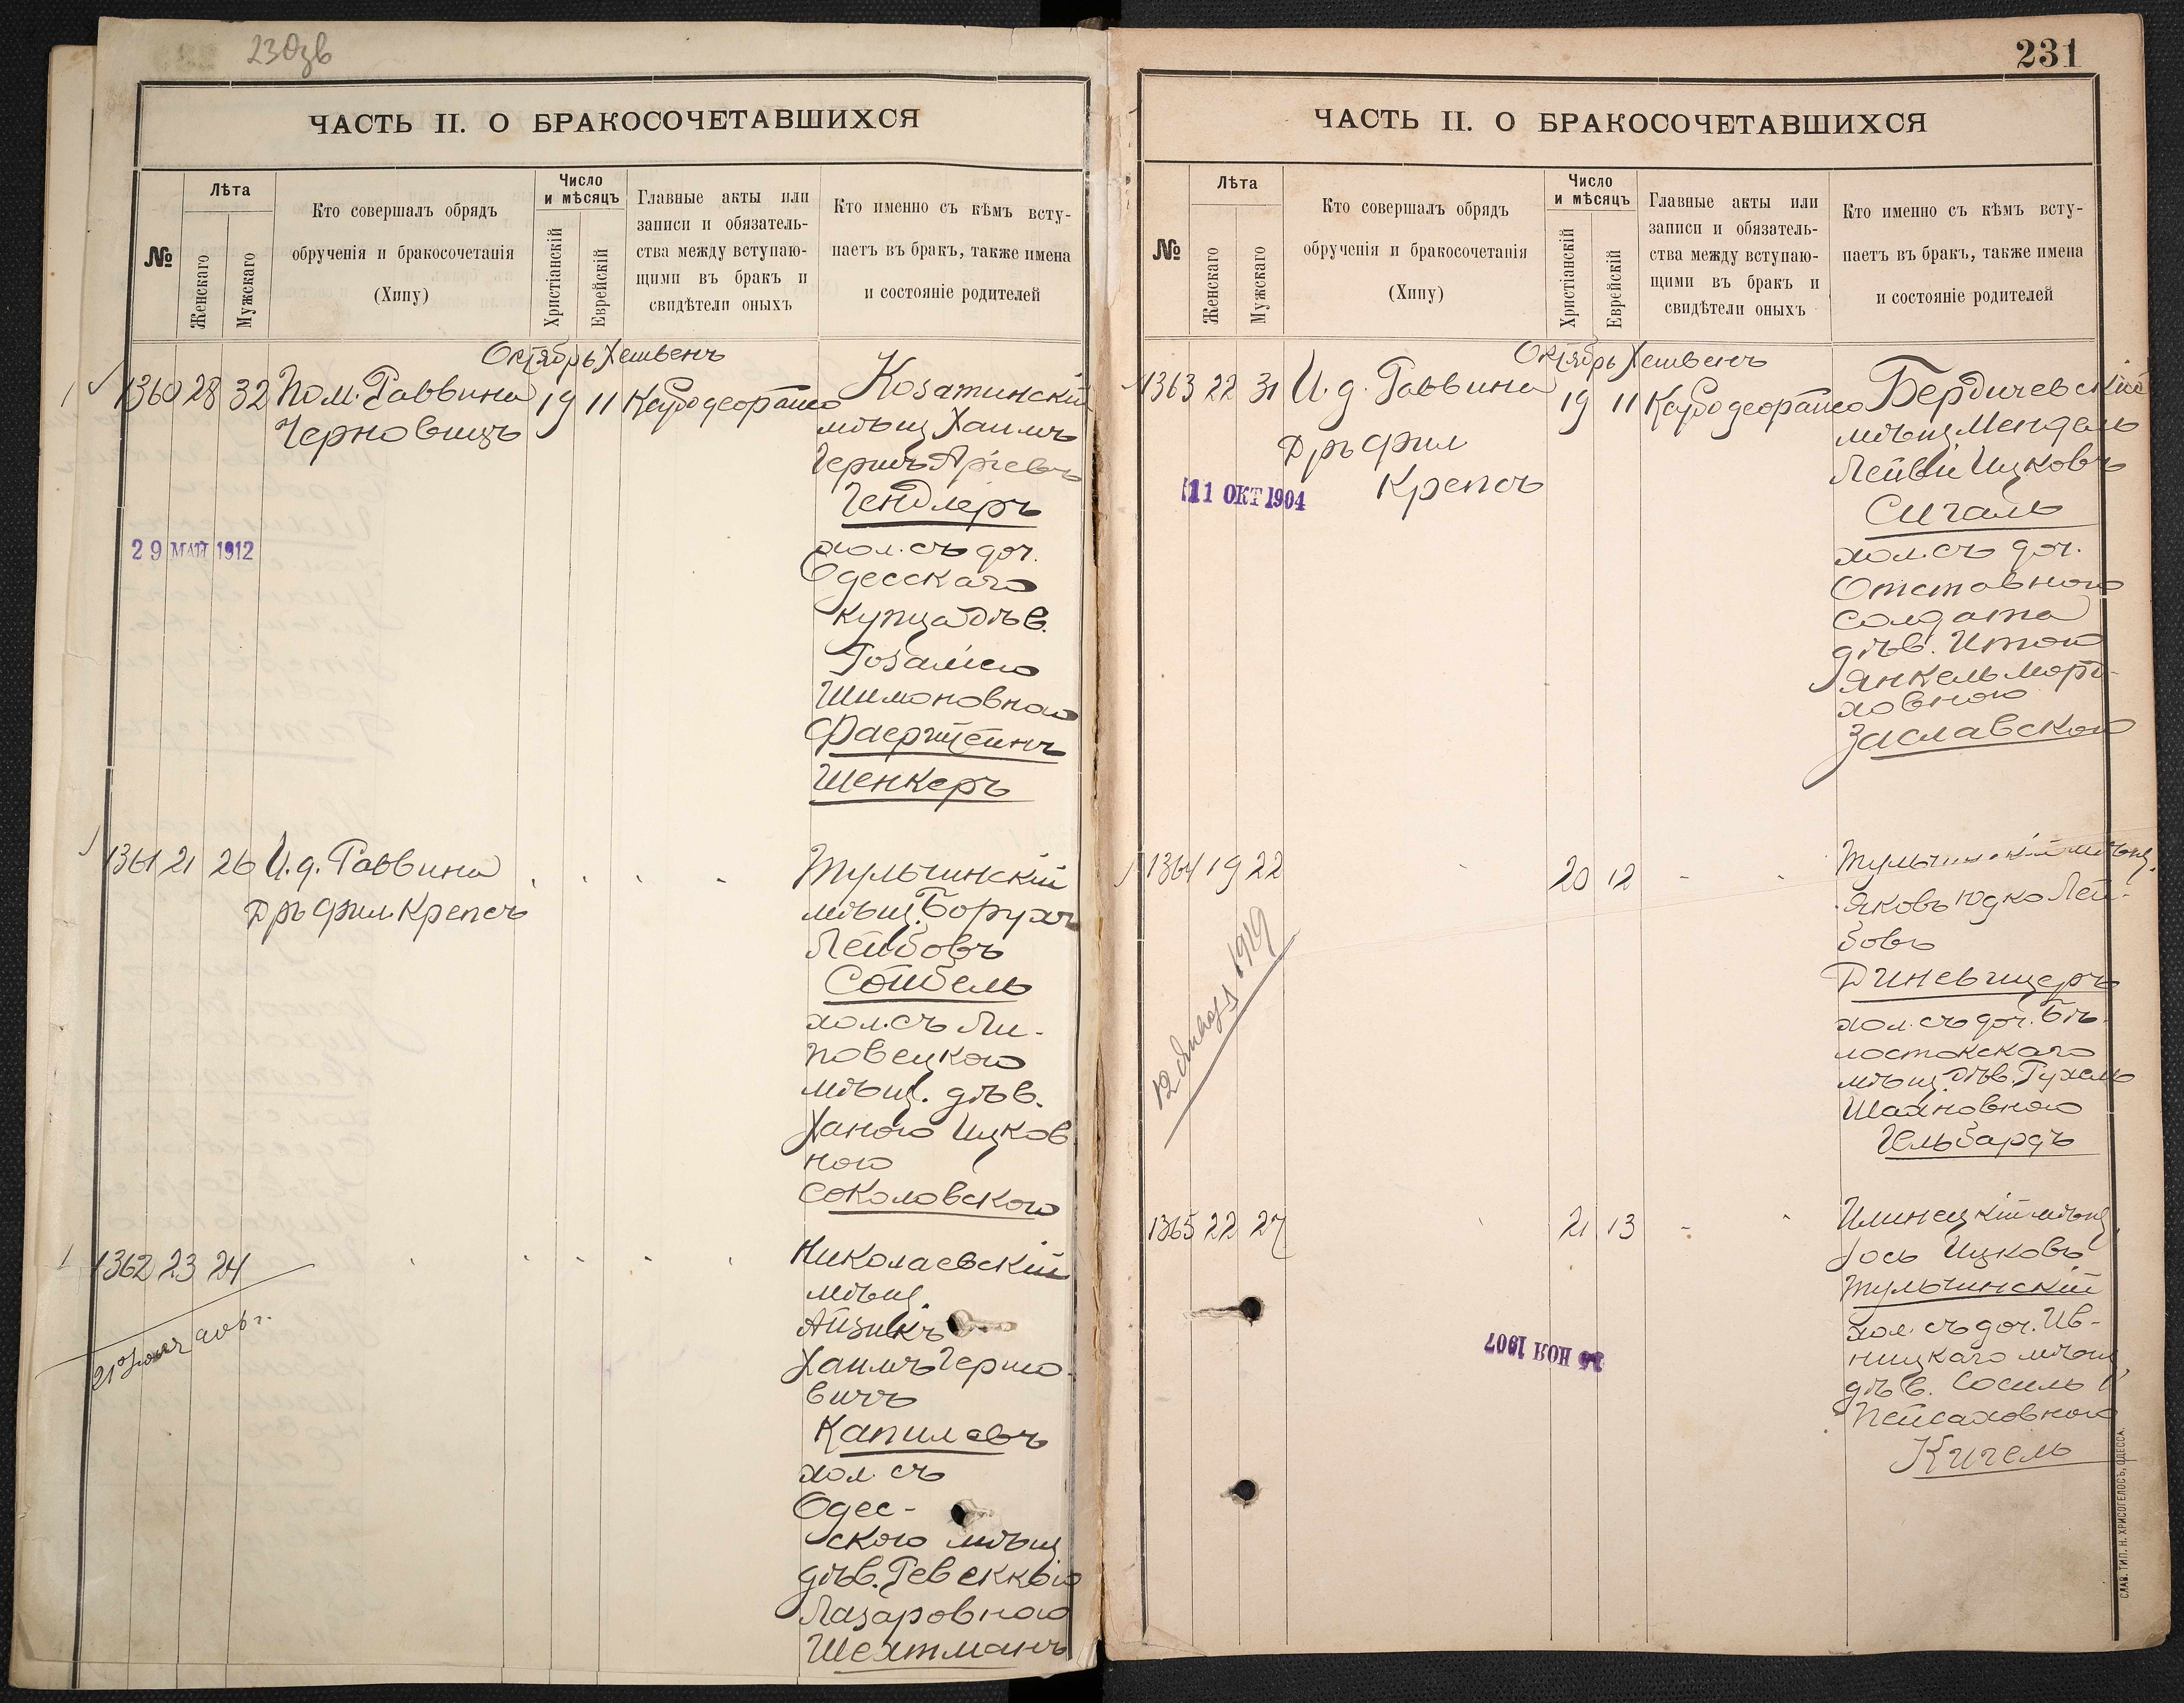 230зв
ЧАСТЬ II. О БРАКОСОЧЕТАВШИХСЯ
№
Лѣта
Женскаго
Мужскаго
Кто совершалъ обрядъ
обрученія и бракосочетанія
(Хипу)
Число
и мѣсяцъ
Христіанскій
Еврейскій
Главные акты или
записи и обязатель-
ства между вступаю-
щими въ бракъ и
свидѣтели оныхъ
Кто именно съ кѣмъ всту-
паетъ въ бракъ, также имена
и состояніе родителей
Октябрь Хешвенъ
1360 28 32 Пом. Раввина 19 11
Черновицъ
29 МАЙ 1912
Козатинскій
мѣщ Хаимъ
Гершъ Аріевъ
Гендлеръ
хол. съ доч.
Одесскаго
купца дѣв.
Розаліею
Шимоновною
Фаерштейнъ
Шенкеръ
1361 21 26 И. д. Раввина
Дръ Фил. Крепсъ
Тульчинскій
мѣщ. Борухъ
Лейбовъ
Сойбель
хол. съ Ли-
повецкою
мѣщ. дѣв.
Ханою Ицков
ною
Соколовскою
1362 23 24
21 906 г.
Николаевскій
мѣщ.
Айзикъ
Хаимъ Гершо-
вичъ
Капиловъ
хол. съ
Одес-
скою мѣщ
дѣв. Ревеккою
Лазаровною
Шехтманъ
231
ЧАСТЬ II. О БРАКОСОЧЕТАВШИХСЯ
№
Лѣта
Женскаго
Мужскаго
Кто совершалъ обрядъ
обрученія и бракосочетанія
(Хипу)
Число
и мѣсяцъ
Христіанскій
Еврейскій
Главные акты или
записи и обязатель-
ства между вступаю-
щими въ бракъ и
свидѣтели оныхъ
Кто именно съ кѣмъ всту-
паетъ въ бракъ, также имена
и состояніе родителей
Октябрь Хешвенъ
1363 22 31 И. д. Раввина 19 11
Дръ Фил
Крепсъ
11 ОКТ 1904
Бердичевскій
мѣщ. Мендель
Лейви Ицковъ
Сигаль
хол. съ доч.
Отставного
солдата
дѣв. Итою
Янкель Морд-
ховною
Заславскою
1364 19 22 20 12
1919
Тульчинскій мѣщ.
Яковъ Юдко Лей-
бовъ
Диневицеръ
хол. съ доч. Бѣ-
лостокскаго
мѣщ. дѣв. Рухель
Шаиновною
Гельбардъ
1365 22 27 21 13
НОЯ 1907
Илинецкій мѣщ.
Іось Ицковъ
Тульчинскій
хол. съ доч. Ив-
ницкаго мѣщ.
дѣв. Сосиль
Пейсаховною
Кигель
СЛАВ. ТИП. Н. ХРИСОГЕЛОСЪ, ОДЕССА.